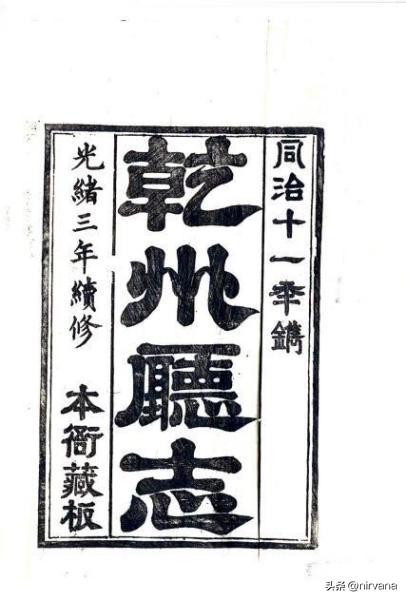 同治十一年鐫
乾州廳志
光緒三年續修
本衙藏板
头条@nirvana